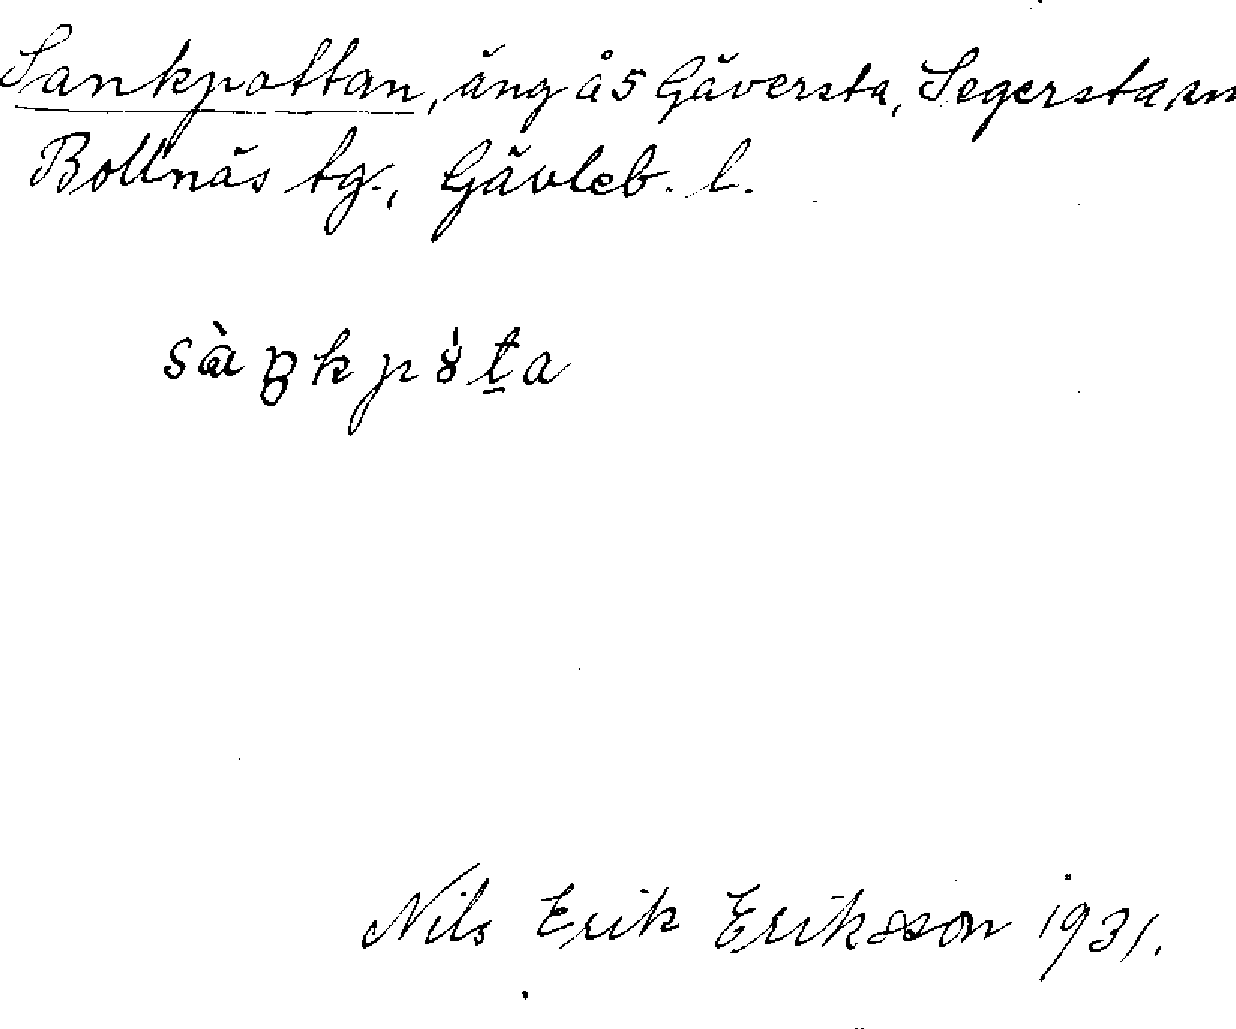 Sankpottan, äng å 5 Gäversta, Segersta sn
Bollnäs tg., Gävleb. l.
Nils Erik Eriksson 1931.